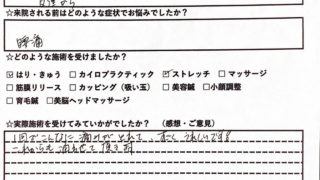 ☆来院される前はどのような症状でお悩みでしたか？
腰痛
☆どのような施術を受けましたか？
☑はり・きゅう □カイロプラクティック ☑ストレッチ □マッサージ
□筋膜リリース □カッピング（吸い玉） □美容鍼 □小顔調整
□育毛鍼 □美脳ヘッドマッサージ
☆実際施術を受けてみていかがでしたか？（感想・ご意見）
1回でこんなに痛みがとれて、すごくうれしいです!
これからも通わせて頂きます